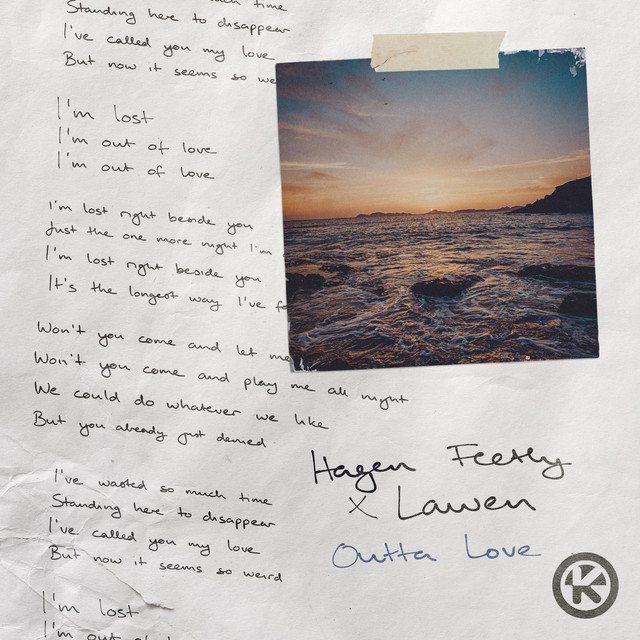 time
Standing here to disappear
I've called you my love
But now it seems so
I'm lost
I'm out of love
I'm out of love
I'm lost right beside you
Just the one more night I'm
I'm lost right beside you
It's the longest way I've
Won't you come and let me
Won't you come and play me all night
We could do whatever we like
But you already just denied
I've wasted so much time
Standing here to disappear
I've called you my love
But now it seems so weird
I'm lost
I'm out of
Hagen Feetly
X Lawen
Outta Love
K